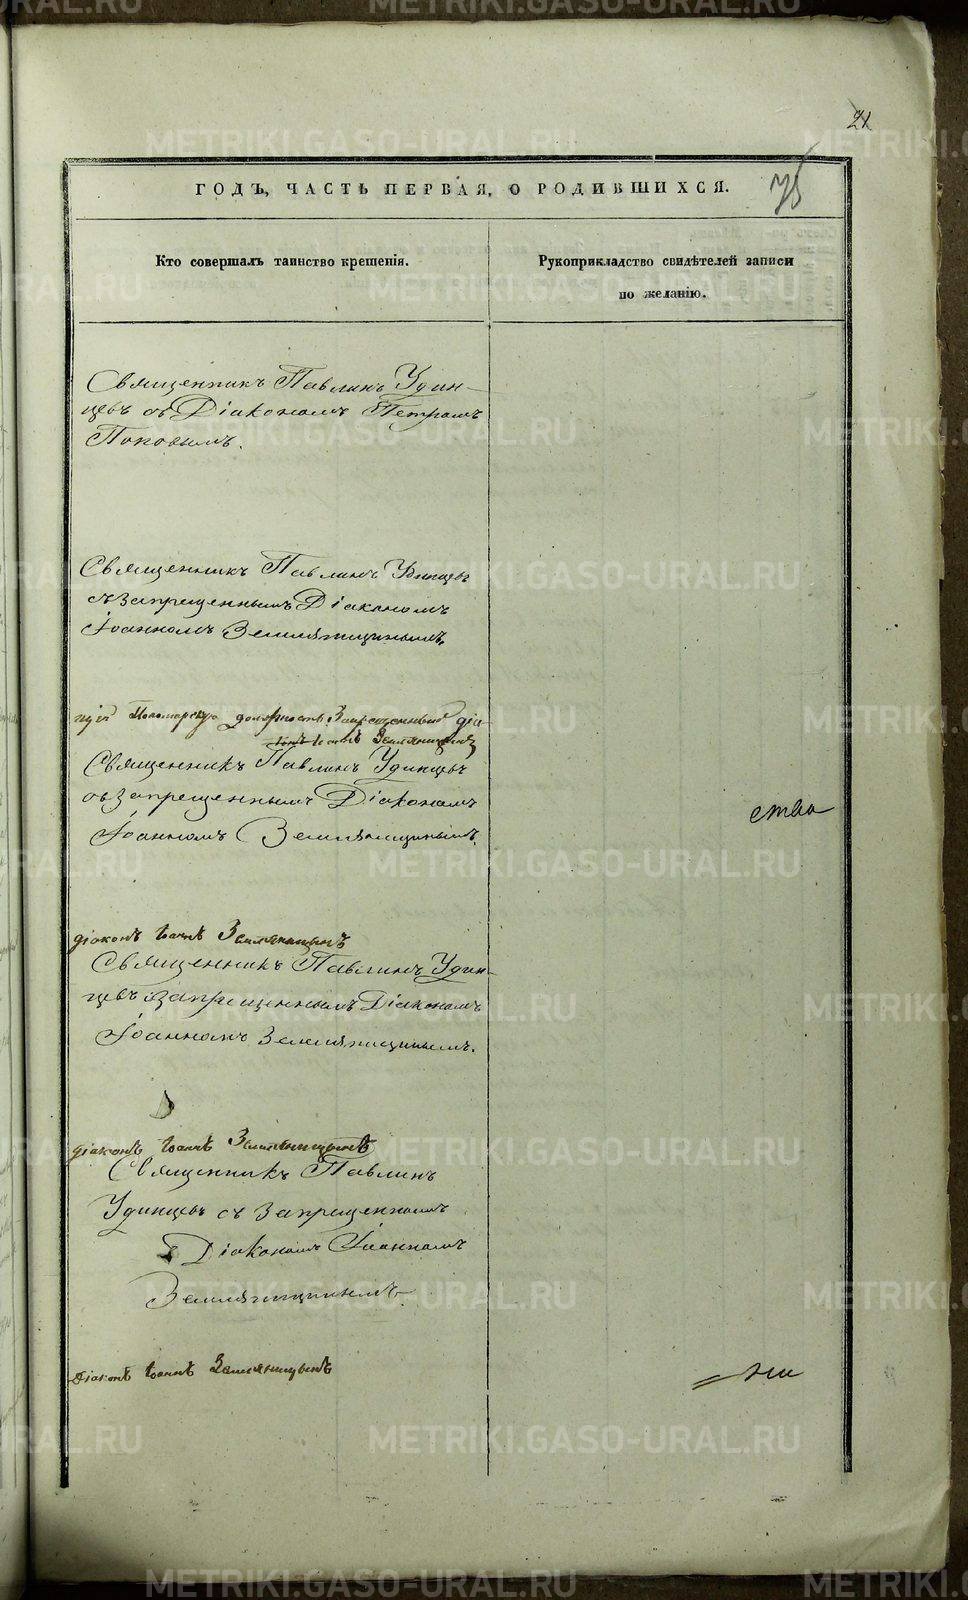 21
75
ГОДЪ, ЧАСТЬ ПЕРВАЯ, О РОДИВШИХСЯ.
Кто совершалъ таинство крещенія.
Рукоприкладство свидѣтелей записи
по желанію.
Священникъ Павлинъ Удин-
цевъ съ Діакономъ Петромъ
Поповымъ.
Священникъ Павлинъ Удинцевъ
съ запрещеннымъ Діакономъ
Іоанномъ Земляницинымъ,
щій Пономарскую должность Запрещенный діа-
конъ Іоаннъ Земляницынъ
Священникъ Павлинъ Удинцевъ
съ запрещеннымъ Діакономъ
Іоанномъ Земляницинымъ.
ства
діаконъ Іоаннъ Земляницынъ
Священникъ Павлинъ Удин-
цевъ запрещеннымъ Діакономъ
Іоанномъ Земляницинымъ.
діаконъ Іоаннъ Земляницынъ
Священникъ Павлинъ
Удинцевъ съ запрещеннымъ
Діакономъ Іоанномъ
Земляницинымъ.
діаконъ Іоаннъ Земляницынъ
METRIKI.GASO-URAL.RU